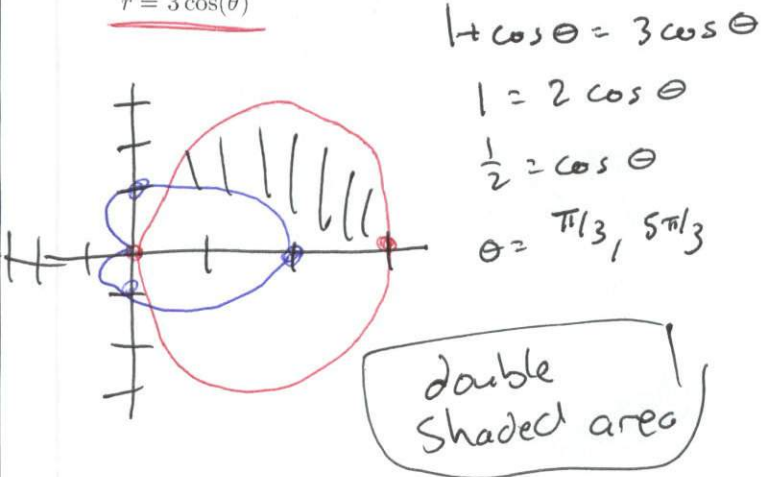 r = 3 cos(θ)
1 + cos θ = 3 cos θ
1 = 2 cos θ
1/2 = cos θ
θ = π/3, 5π/3
double
shaded area